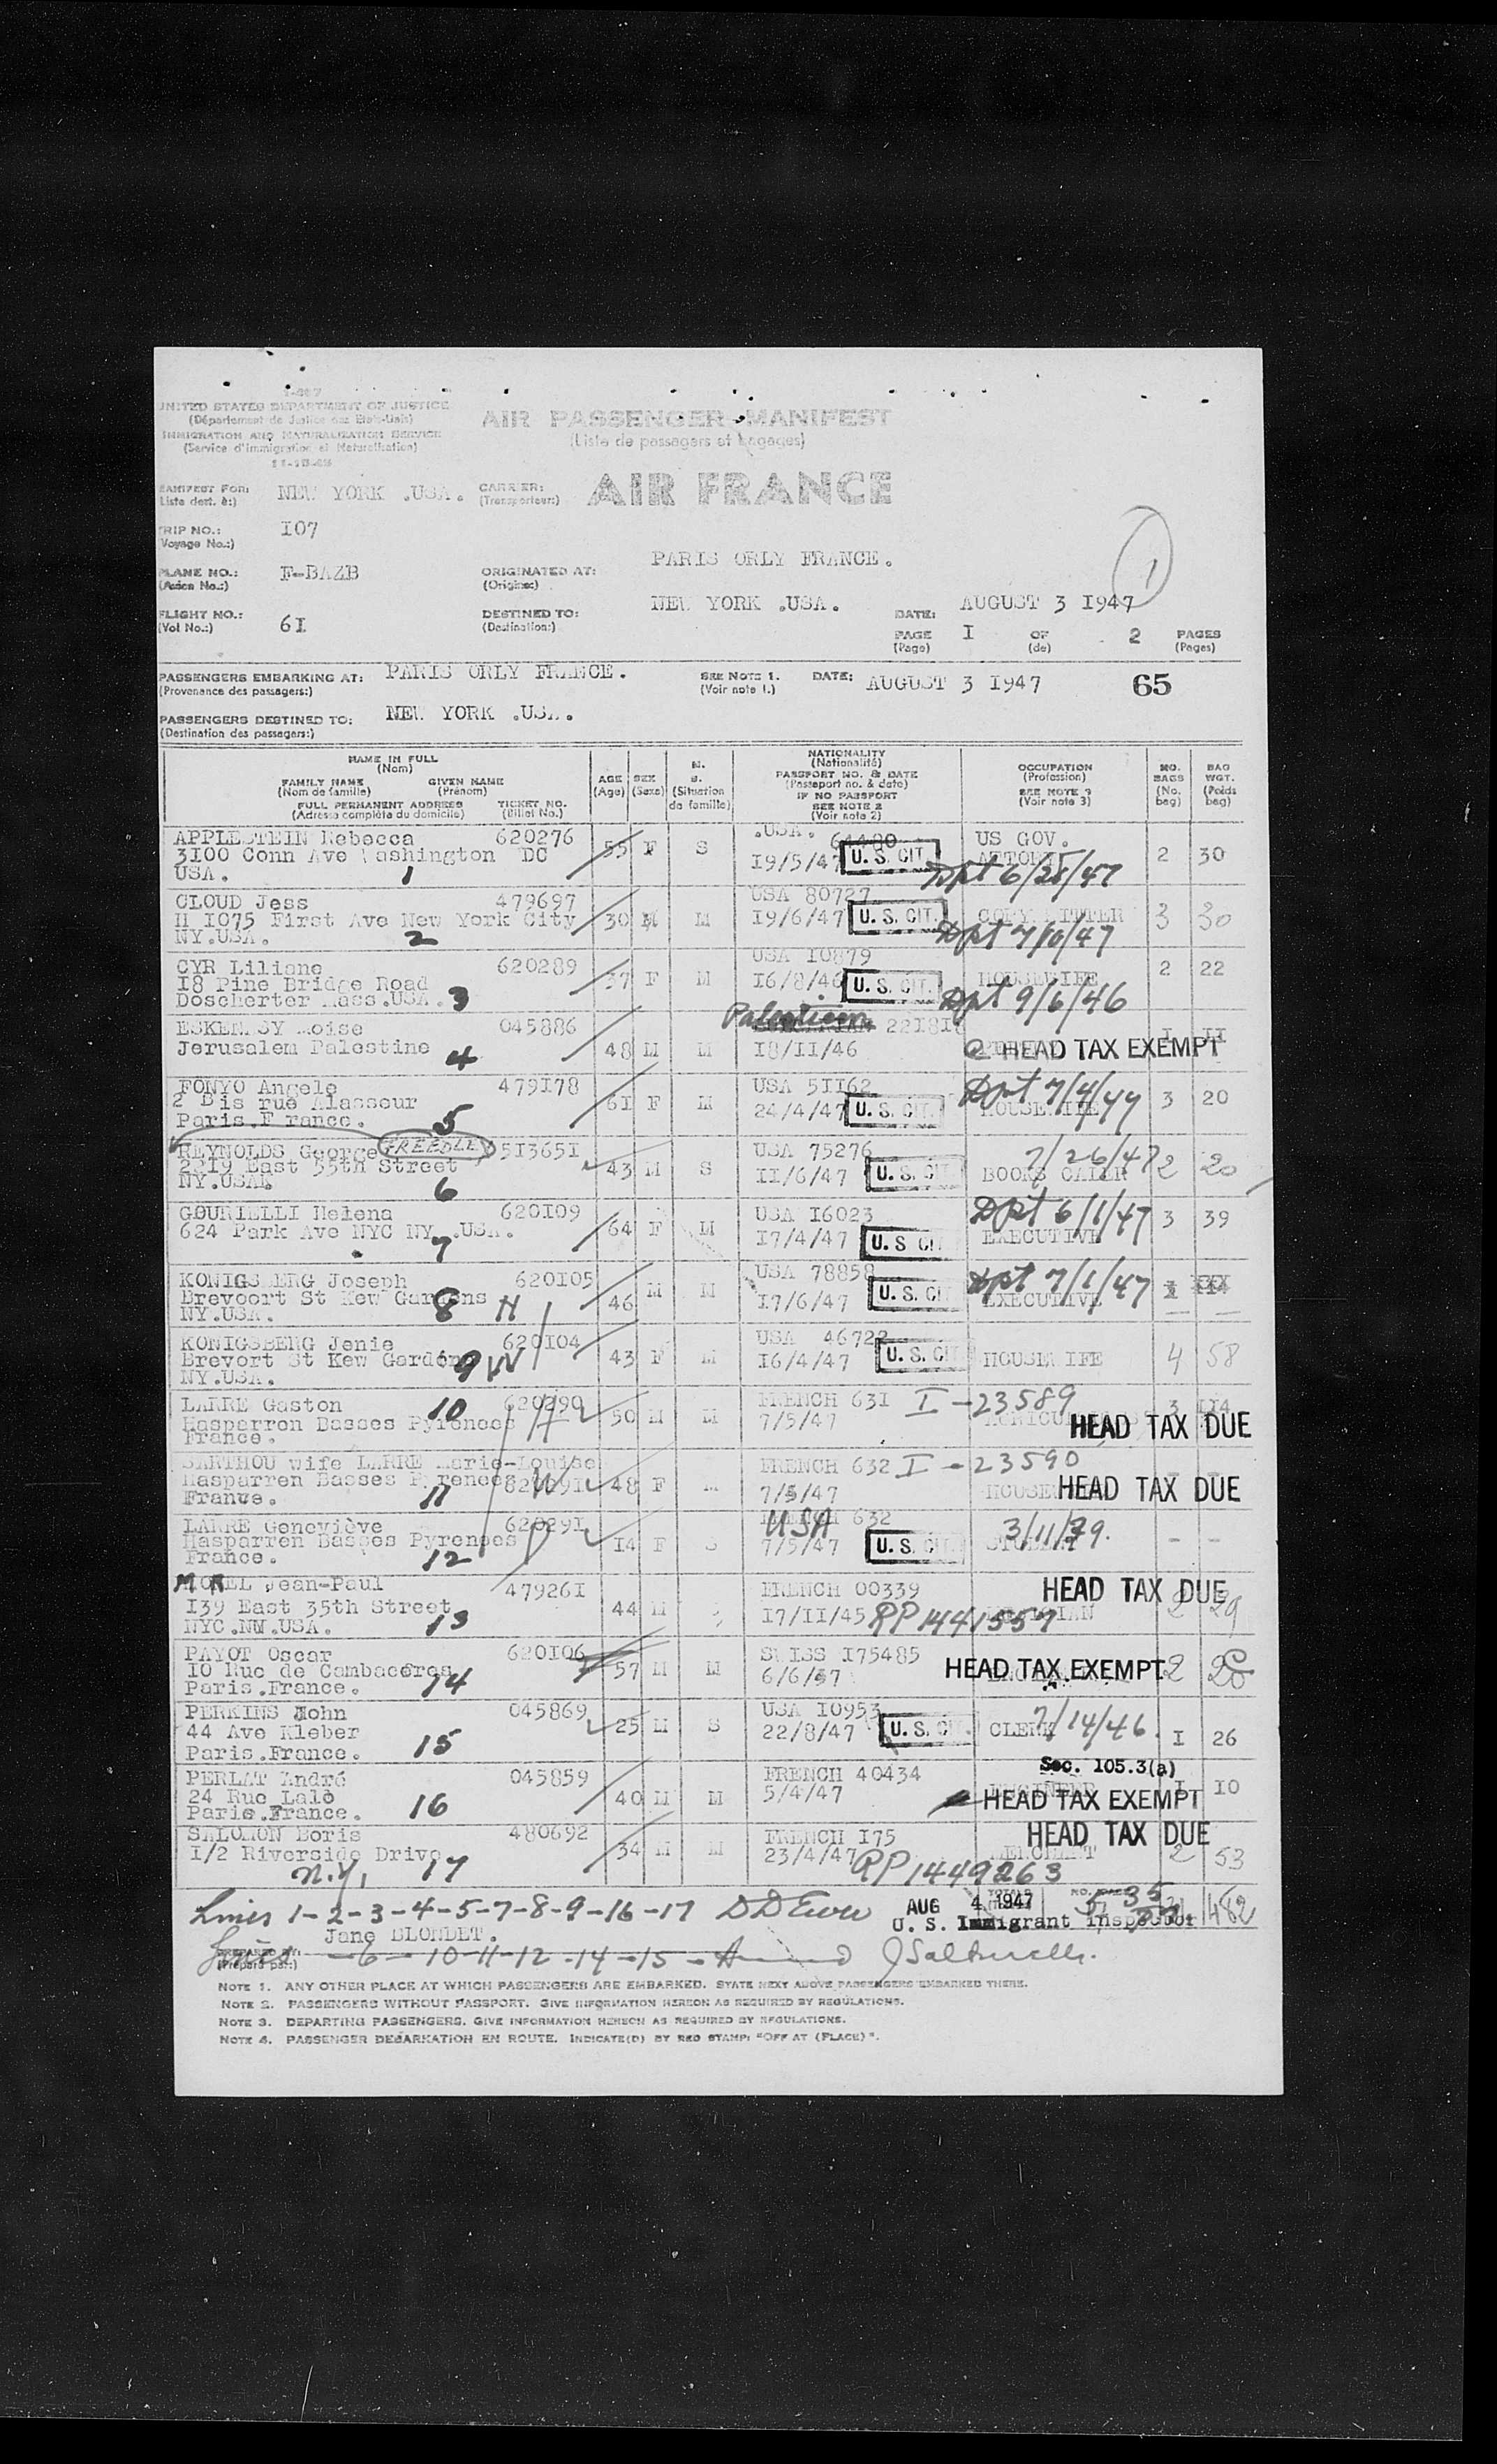 I-467
UNITED STATES DEPARTMENT OF JUSTICE
(Département de Justice des Etats-Unis)
IMMIGRATION AND NATURALIZATION SERVICE
(Service d'immigration et Naturalisation)
AIR PASSENGER MANIFEST
(Liste de passagers et bagages)
MANIFEST FOR: NEW YORK .USA.
Liste dest. à:)
CARRIER: AIR FRANCE
(Transporteur:)
TRIP NO.: I07
Voyage No.:)
PLANE NO.: F-BAZB
(Avion No.:)
ORIGINATED AT: PARIS ORLY FRANCE.
(Origine:)
1
FLIGHT NO.: 6I
(Vol No.:)
DESTINED TO: NEW YORK .USA.
(Destination:)
DATE: AUGUST 3 I947
PAGE I OF 2 PAGES
(Page) (de) (Pages)
PASSENGERS EMBARKING AT: PARIS ORLY FRANCE.
(Provenance des passagers:)
SEE NOTE 1. DATE: AUGUST 3 I947 65
(Voir note 1.)
PASSENGERS DESTINED TO: NEW YORK .USA.
(Destination des passagers:)
NAME IN FULL
(Nom)
FAMILY NAME GIVEN NAME
(Nom de famille) (Prénom)
FULL PERMANENT ADDRESS TICKET NO.
(Adresse complète du domicile) (Billet No.)
AGE
(Age)
SEX
(Sexe)
M.
S.
(Situation de famille)
NATIONALITY
(Nationalité)
PASSPORT NO. & DATE
(Passeport no. & date)
IF NO PASSPORT
SEE NOTE 2
(Voir note 2)
OCCUPATION
(Profession)
SEE NOTE 3
(Voir note 3)
NO. BAGS
(No. bag)
BAG WGT.
(Poids bag)
APPLESTEIN Rebecca 620276 55 F S .USA. 64480 US GOV.
3I00 Conn Ave Washington DC I9/5/47 U. S. CIT. 2 30
USA. 1 Dpt 6/28/47
CLOUD Jess 479697 USA 80727
H I075 First Ave New York City 30 M M I9/6/47 U. S. CIT. 3 30
NY.USA. 2 Dpt 7/10/47
CYR Liliane 620289 USA I0879
I8 Pine Bridge Road 37 F M I6/8/46 U. S. CIT. HOUSEWIFE 2 22
Doscherter Mass.USA. 3 Dpt 9/6/46
045886 Palestinian
Jerusalem Palestine 4 48 M M I8/II/46 HEAD TAX EXEMPT
FONYO Angele 479I78 USA 5II62 Dpt 7/4/47
2 Bis rue Alasseur 61 F M 24/4/47 U. S. CIT. HOUSEWIFE 3 20
Paris.F rance. 5
REYNOLDS George FREEDLEY 5I365I USA 75276 7/26/47
22I9 East 55th Street 43 M S II/6/47 U. S. CIT. 2 20
NY.USA. 6
GOURIELLI Helena 620I09 USA I6023 Dpt 6/1/47
624 Park Ave NYC NY .USA. 7 64 F M I7/4/47 U. S CIT EXECUTIVE 3 39
KONIGSBERG Joseph 620I05 USA 78858 Dpt 7/1/47
Brevoort St Kew Gardens 8 H 46 M M I7/6/47 U. S. CIT EXECUTIVE
NY.USA.
KONIGSBERG Jenie 620I04 USA 46722
Brevort St Kew Gardens 9 W 43 F M I6/4/47 U. S. CIT HOUSEWIFE 4 58
NY.USA.
LARRE Gaston 10 620290 FRENCH 63I I-23589 3 II4
Hasparren Basses Pyrenees H 50 M M 7/5/47 HEAD TAX DUE
France.
BARTHOU wife LARRE Marie-Louise FRENCH 632 I-23590
Hasparren Basses Pyrenees W 48 F M 7/5/47 HEAD TAX DUE
France. 11
LARRE Geneviève 62029I USA 632 3/11/39.
Hasparren Basses Pyrenees D I4 F S 7/5/47 U. S. CIT. - -
France. 12
MOREL Jean-Paul 47926I FRENCH 00339 HEAD TAX DUE
I39 East 35th Street 44 M I7/II/45 RP 1441557 2 29
NYC.NW.USA. 13
PAYOT Oscar 620I06 SWISS I75485
I0 Rue de Cambaceres 57 M M 6/6/57 HEAD TAX EXEMPT 2
Paris.France. 14
PERKINS John 045869 USA I0953 7/14/46.
44 Ave Kleber 25 M S 22/8/47 U. S. CIT. CLERK I 26
Paris.France. 15
PERLAT André 045859 FRENCH 40434 Sec. 105.3(a)
24 Rue Lalo 40 M M 5/4/47 ENGINEER I I0
Paris.France. 16 HEAD TAX EXEMPT
SALOMON Boris 480692 FRENCH I75 HEAD TAX DUE
I/2 Riverside Drive 34 M M 23/4/47 MERCHANT 2 53
N.Y. 17 RP 1449263
Lines 1-2-3-4-5-7-8-9-16-17 AUG 4 1947 35 482
U. S. Immigrant Inspector
Jane BLONDET.
PREPARED BY:
(Préparé par:)
Lines -6- 10-11-12-14-15-
NOTE 1. ANY OTHER PLACE AT WHICH PASSENGERS ARE EMBARKED. STATE NEXT ABOVE PASSENGERS EMBARKED THERE.
NOTE 2. PASSENGERS WITHOUT PASSPORT. GIVE INFORMATION HEREON AS REQUIRED BY REGULATIONS.
NOTE 3. DEPARTING PASSENGERS. GIVE INFORMATION HEREON AS REQUIRED BY REGULATIONS.
NOTE 4. PASSENGER DEBARKATION EN ROUTE. INDICATE(D) BY RED STAMP: "OFF AT (PLACE)".